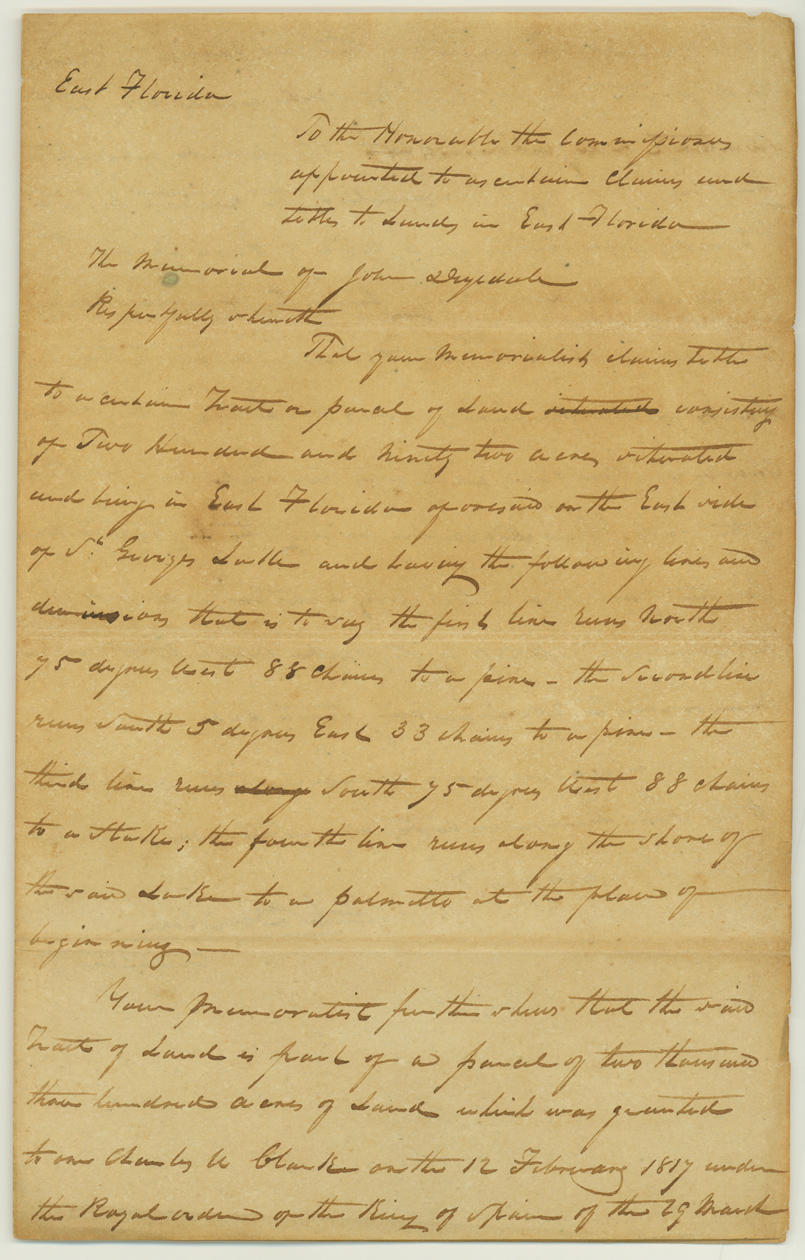 East Florida
To the Honorable the Commissioners
appointed to ascertain Claims and
titles to Lands in East Florida
The Memorial of John Drysdale
Respectfully sheweth
That your Memorialist claims title
to a certain Tract or parcel of Land situated consisting
of Two Hundred and Ninety two acres situated
and being in East Florida aforesaid on the East side
of St. Georges Lake and having the following lines and
dimensions that is to say the first line runs North
75 degrees West 88 Chains to a pine - the Second line
runs South 5 degrees East 33 chains to a pine - the
third line runs along South 75 degrees West 88 chains
to a Stake; the fourth line runs along the shore of
the said Lake to a palmetto at the place of
beginning
Your Memorialist further shews that the said
Tract of Land is part of a parcel of two thousand
three hundred acres of Land which was granted
to one Charles W Clarke on the 12 February 1817 under
the Royal order of the King of Spain of the 29 March